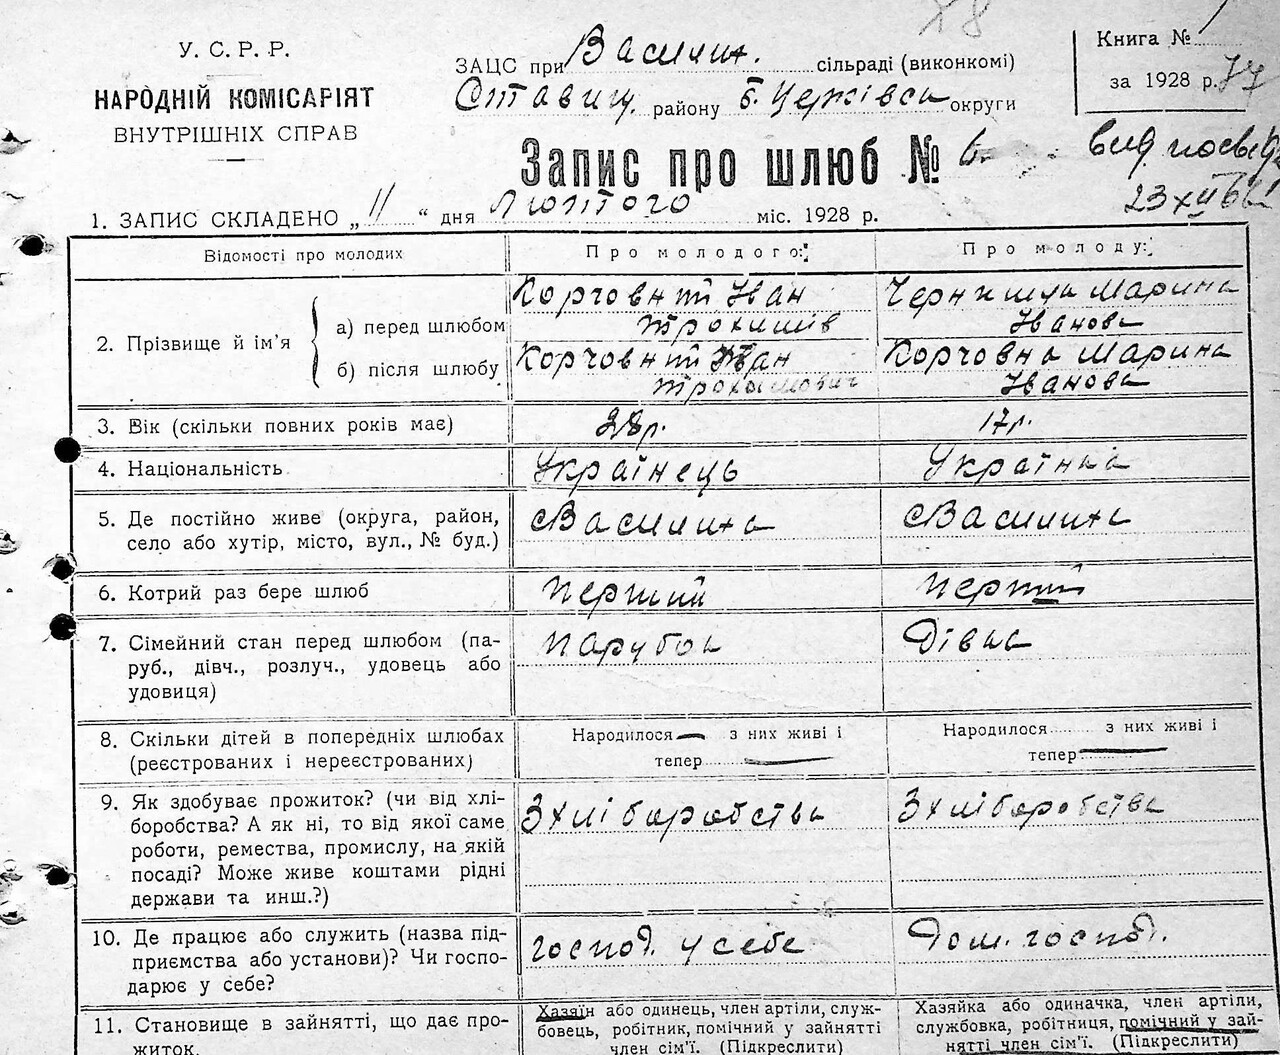 У. С. Р. Р.
НАРОДНІЙ КОМІСАРІЯТ
ВНУТРІШНІХ СПРАВ
ЗАЦС при Василих. сільраді (виконкомі)
Ставищ. району Б. Церківська округи
Книга №
за 1928 р. 77
Запис про шлюб № 6.
вид. посвід
23 XII 6
1. ЗАПИС СКЛАДЕНО „11“ дня Лютого міс. 1928 р.
Відомості про молодих
Про молодого:
Про молоду:
2. Прізвище й ім’я
а) перед шлюбом
Корчовний Іван
Трохимів
Марина
Іванова
б) після шлюбу
Корчовний Іван
Трохимович
Корчовна Марина
Іванова
3. Вік (скільки повних років має)
28р.
17р.
4. Національність
Українець
Українка
5. Де постійно живе (округа, район,
село або хутір, місто, вул., № буд.)
с Василиха
с Василиха
6. Котрий раз бере шлюб
Перший
Перший
7. Сімейний стан перед шлюбом (па-
руб., дівч., розлуч., удовець або
удовиця)
Парубок
Дівка
8. Скільки дітей в попередніх шлюбах
(реєстрованих і нереєстрованих)
Народилося — з них живі і
тепер —
Народилося з них живі і
тепер —
9. Як здобуває прожиток? (чи від хлі-
боробства? А як ні, то від якої саме
роботи, ремества, промислу, на якій
посаді? Може живе коштами рідні
держави та инш.?)
З хліборобства
З хліборобства
10. Де працює або служить (назва під-
приємства або установи)? Чи госпо-
дарює у себе?
господ. у себе
Дом. господ.
11. Становище в зайнятті, що дає про-
житок.
Хазяїн або одинець, член артіли, служ-
бовець, робітник, помічний у зайнятті
член сім’ї. (Підкреслити)
Хазяйка або одиначка, член артіли,
службовка, робітниця, помічний у зай-
нятті член сім’ї. (Підкреслити)